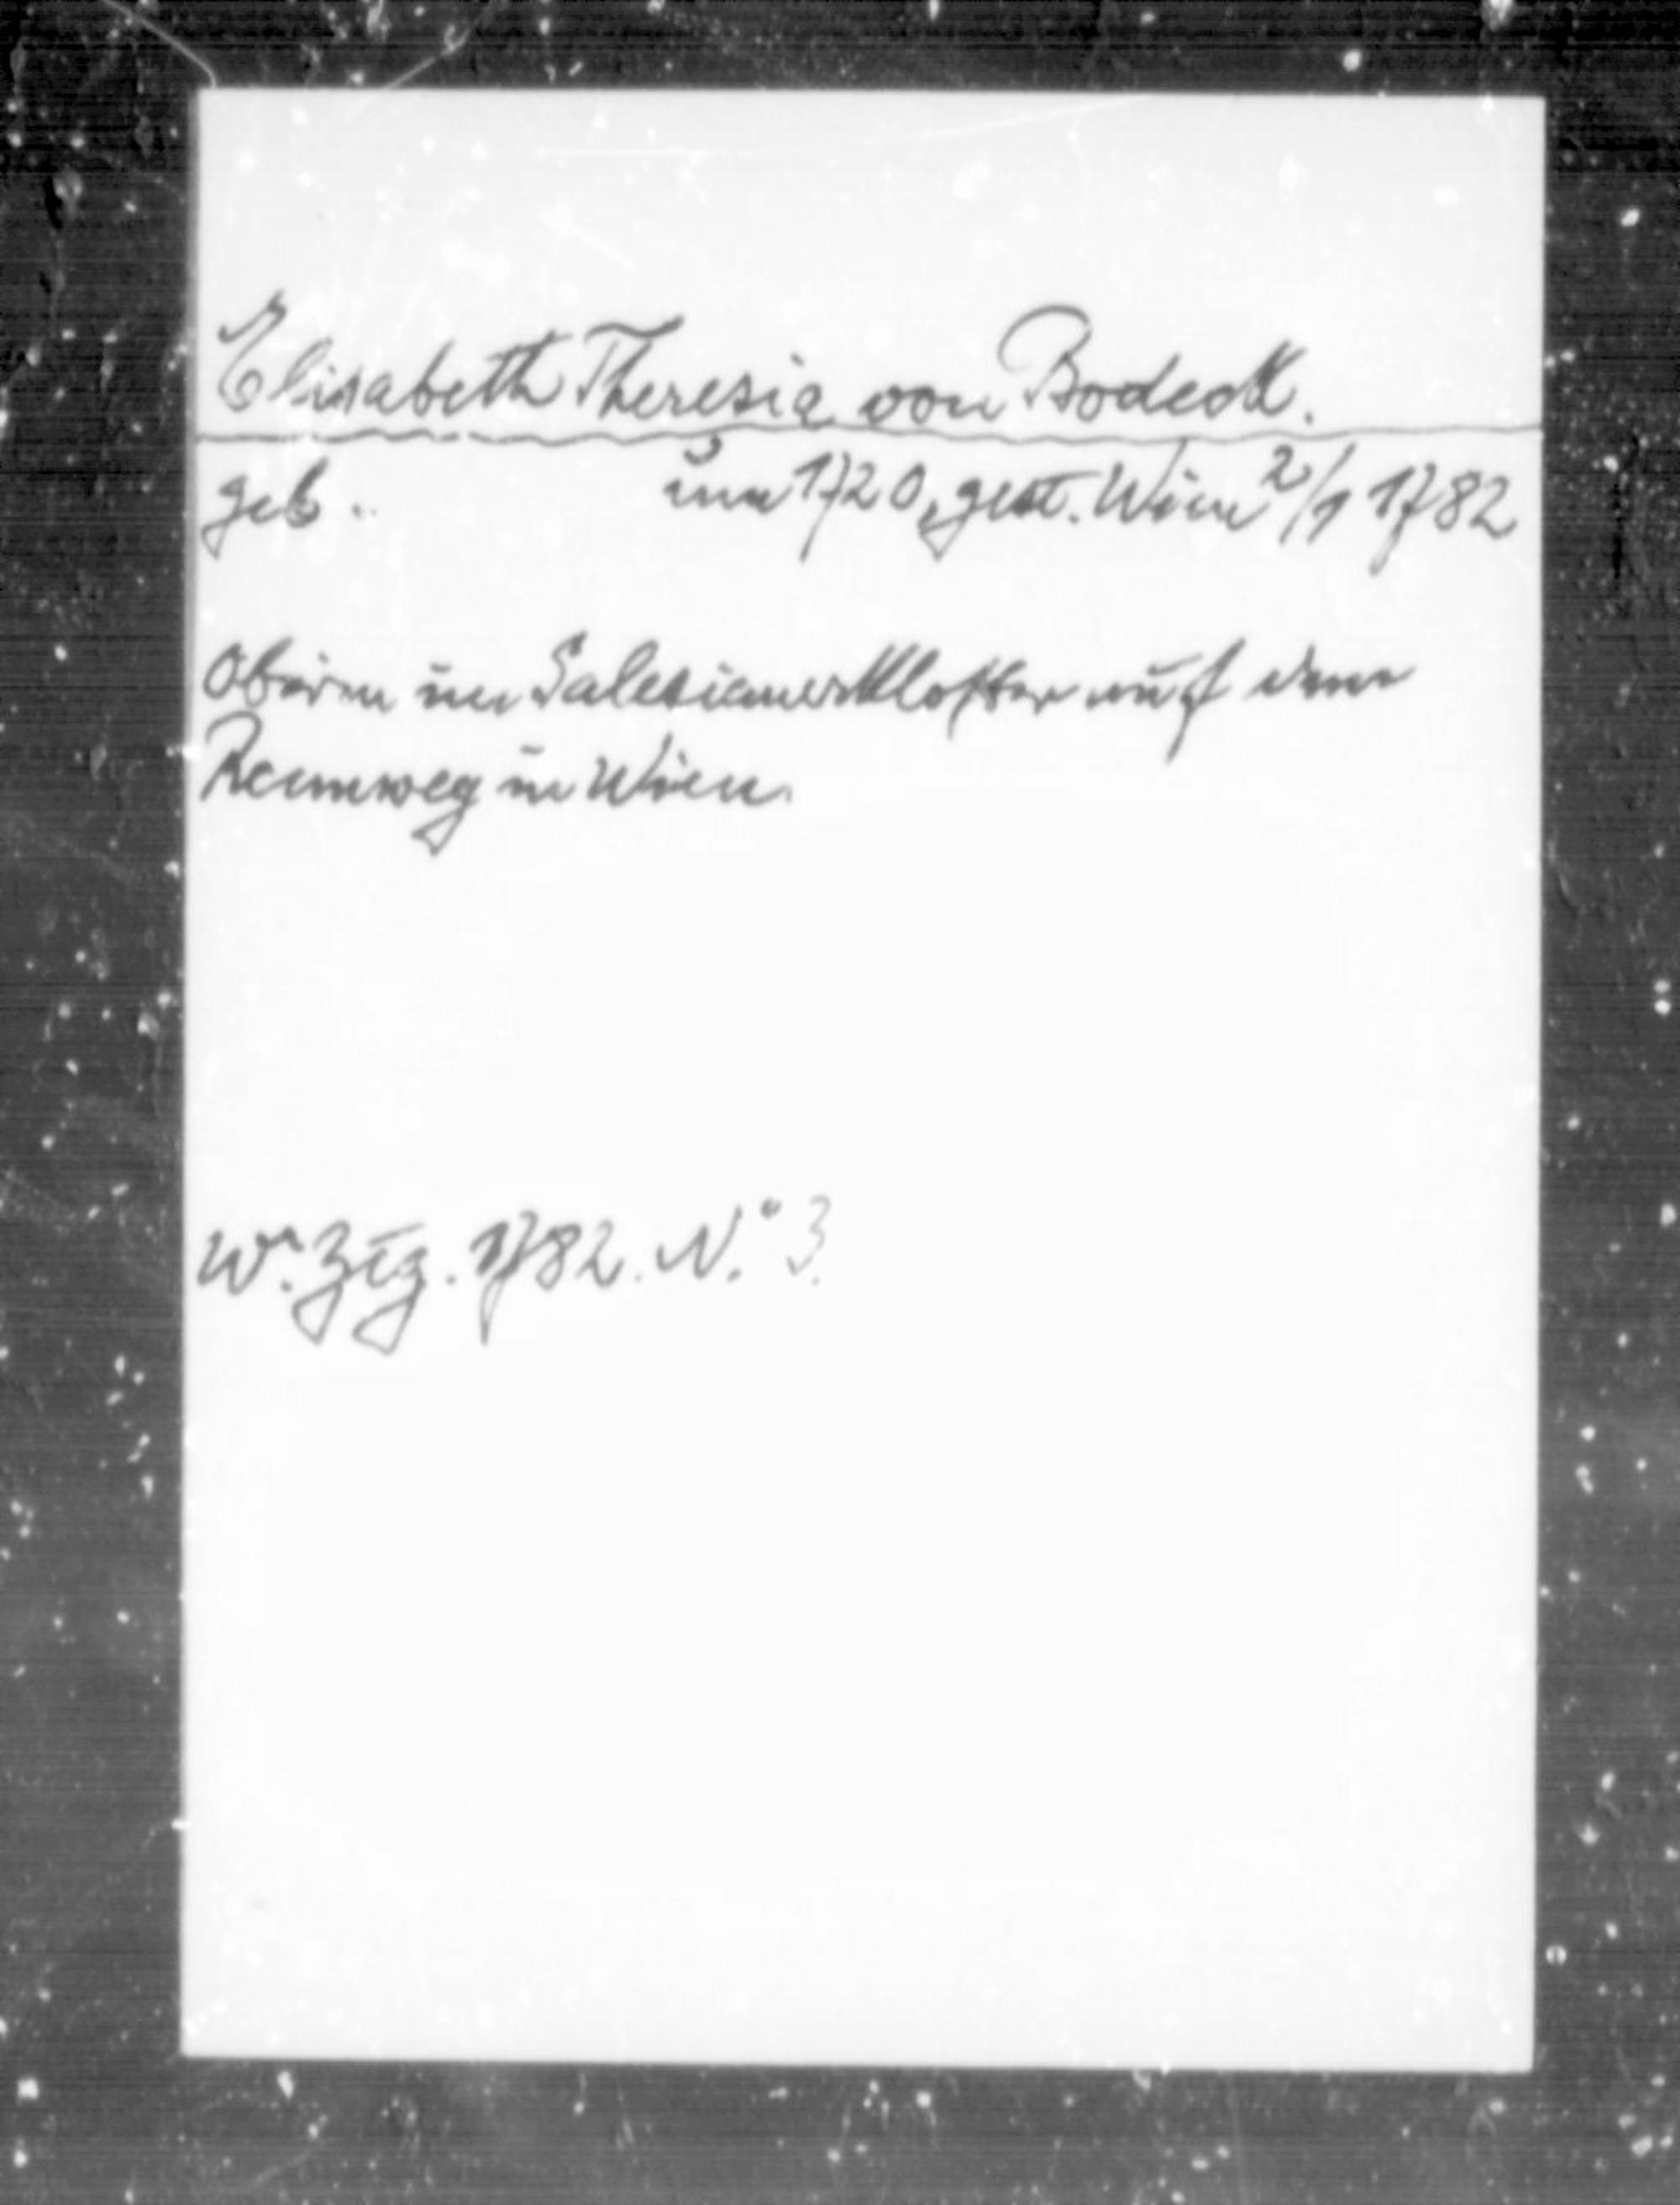 Elisabeth Theresia von Bodeck.
geb. um 1720, gest. Wien 2/1 1782
Oberin im Salesianerkloster auf dem
Rennweg in Wien.
Wr. Ztg. 1782. N.° 3.